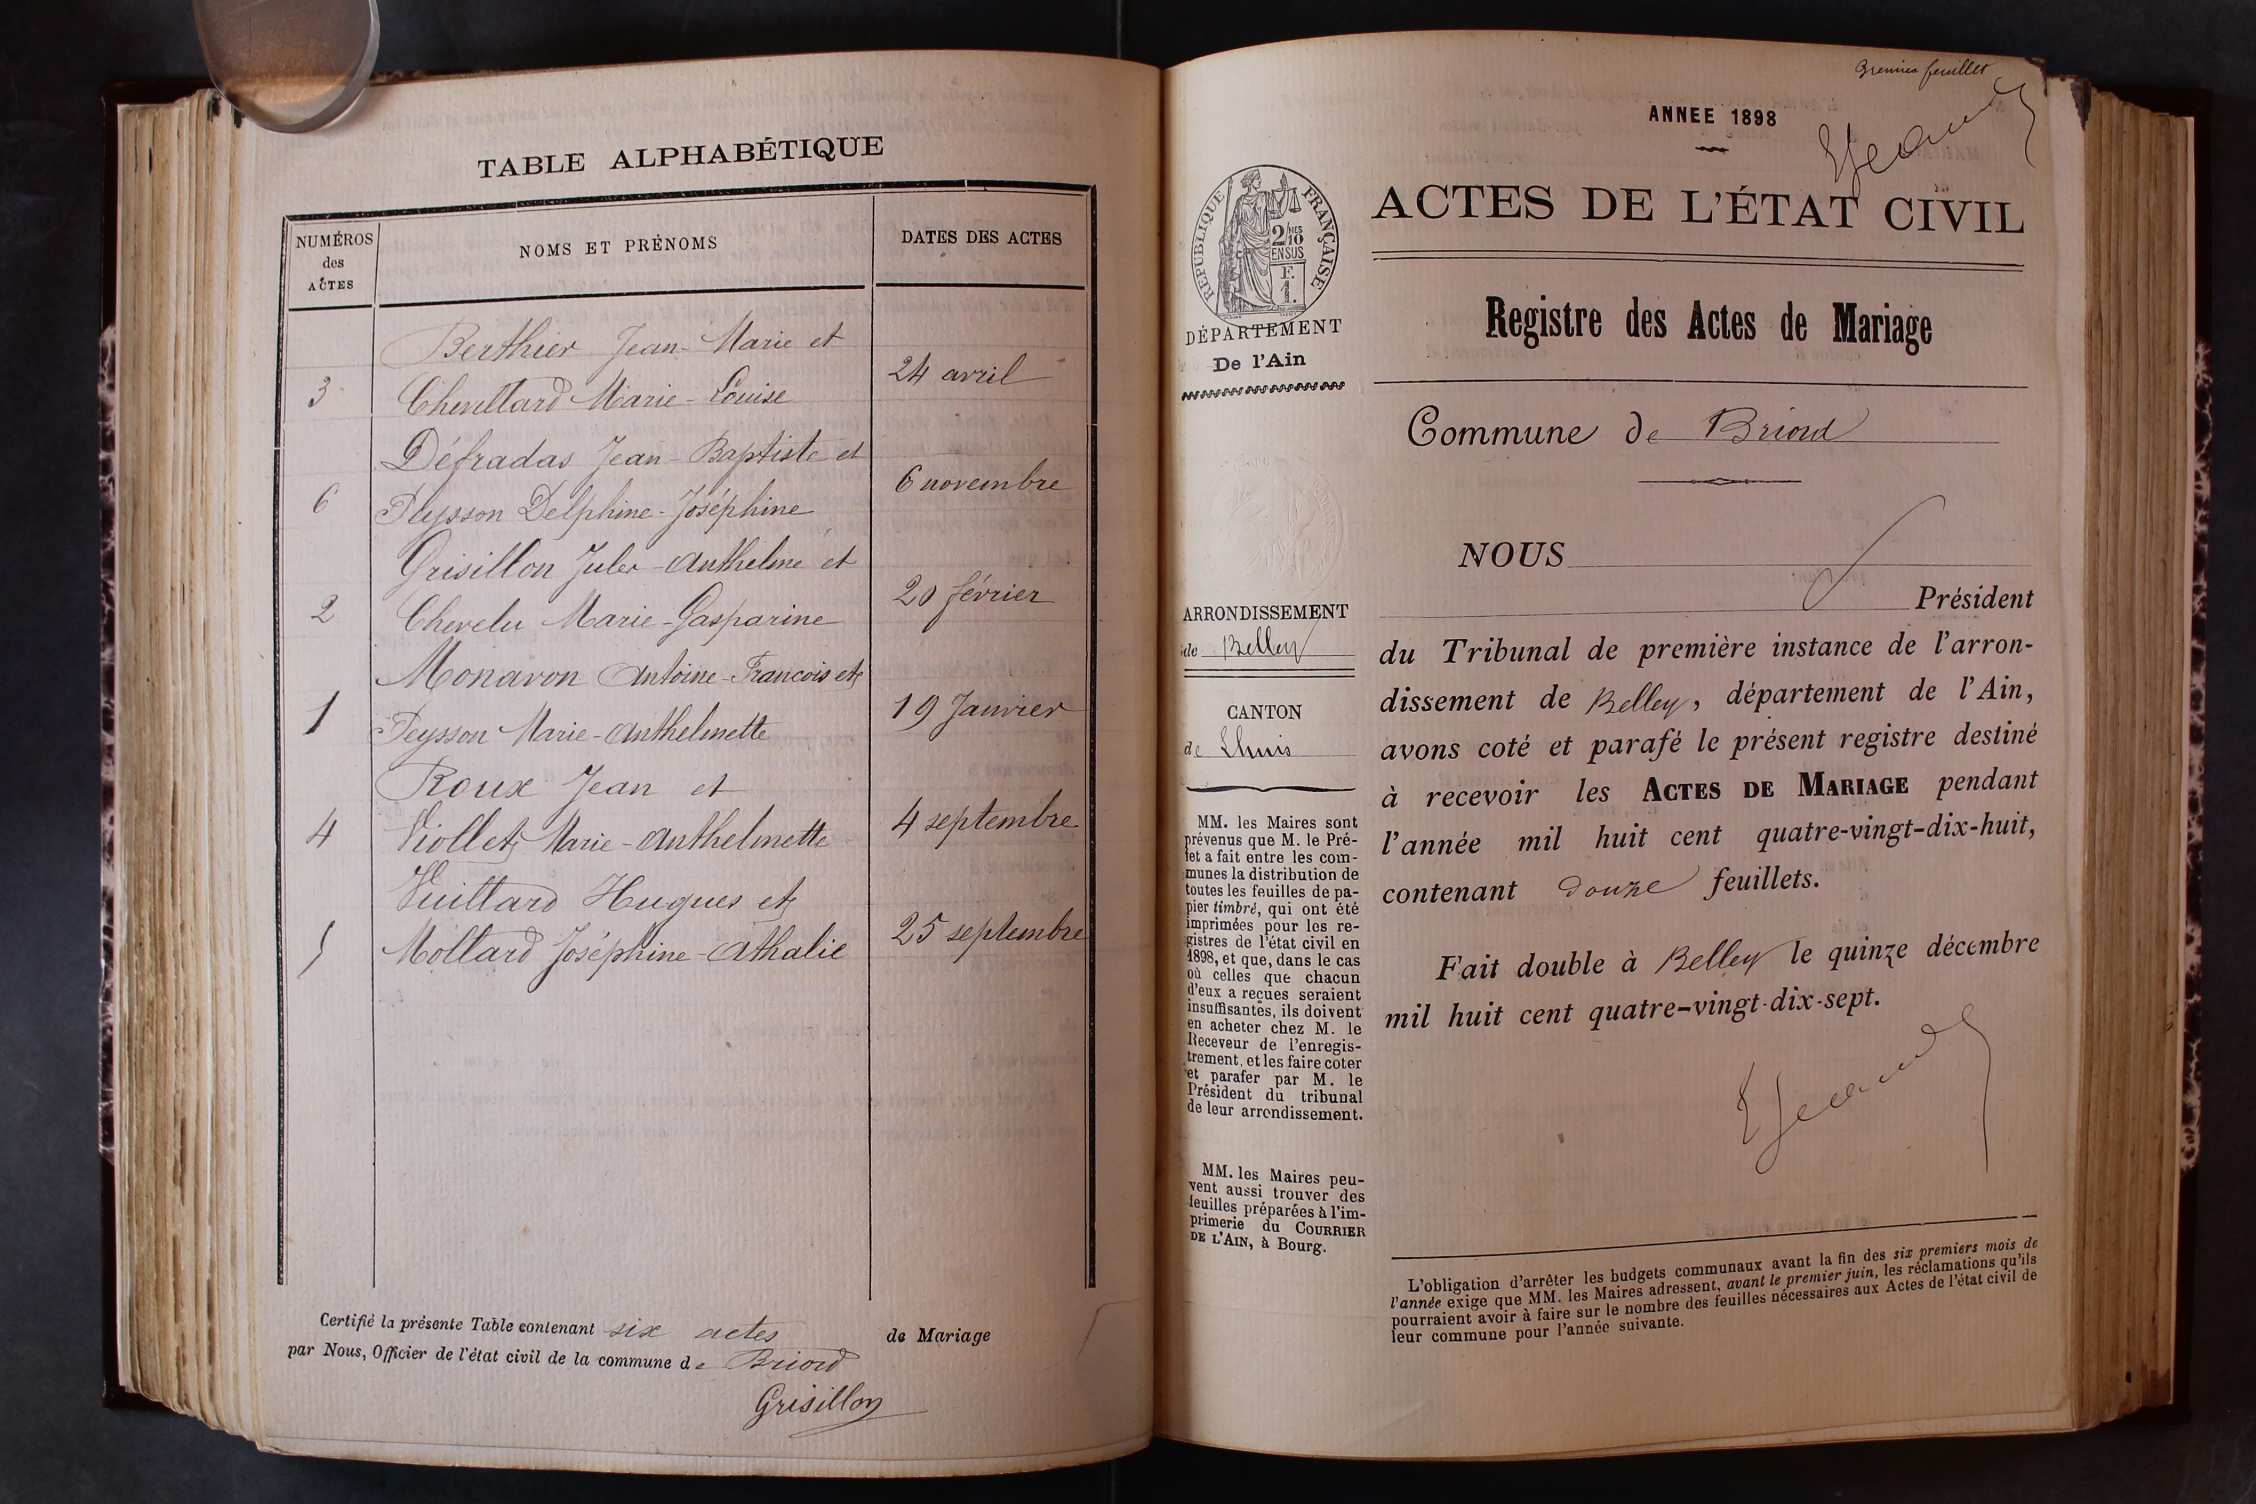 TABLE ALPHABÉTIQUE
NUMÉROS
des
ACTES
NOMS ET PRÉNOMS
DATES DES ACTES
Berthier Jean-Marie et
3 Chevillard Marie-Louise 24 avril
Défradas Jean-Baptiste et
6 Peysson Delphine-Joséphine 6 novembre
Grisillon Jules-Anthelme et
2 Chevelu Marie-Gasparine 20 février
Monavon Antoine-Francois et
1 Peysson Marie-Anthelmette 19 Janvier
Roux Jean et
4 Viollet Marie-Anthelmette 4 septembre
Vuillard Hugues et
5 Mollard Joséphine-Athalie 25 septembre
Certifié la présente Table contenant six actes de Mariage
par Nous, Officier de l'état civil de la commune de Briord
Grisillon
Premier feuillet
ANNEE 1898
ACTES DE L'ÉTAT CIVIL
RÉPUBLIQUE FRANÇAISE
2/10MES
EN SUS
F.
1.
DÉPARTEMENT
De l'Ain
Registre des Actes de Mariage
Commune de Briord
NOUS
Président
du Tribunal de première instance de l'arron-
dissement de Belley, département de l'Ain,
avons coté et parafé le présent registre destiné
à recevoir les ACTES DE MARIAGE pendant
l'année mil huit cent quatre-vingt-dix-huit,
contenant douze feuillets.
Fait double à Belley le quinze décembre
mil huit cent quatre-vingt-dix-sept.
ARRONDISSEMENT
de Belley
CANTON
de Lhuis
MM. les Maires sont
prévenus que M. le Pré-
fet a fait entre les com-
munes la distribution de
toutes les feuilles de pa-
pier timbré, qui ont été
imprimées pour les re-
gistres de l'état civil en
1898, et que, dans le cas
où celles que chacun
d'eux a reçues seraient
insuffisantes, ils doivent
en acheter chez M. le
Receveur de l'enregis-
trement, et les faire coter
et parafer par M. le
Président du tribunal
de leur arrondissement.
MM. les Maires peu-
vent aussi trouver des
feuilles préparées à l'im-
primerie du COURRIER
DE L'AIN, à Bourg.
L'obligation d'arrêter les budgets communaux avant la fin des six premiers mois de
l'année exige que MM. les Maires adressent, avant le premier juin, les réclamations qu'ils
pourraient avoir à faire sur le nombre des feuilles nécessaires aux Actes de l'état civil de
leur commune pour l'année suivante.